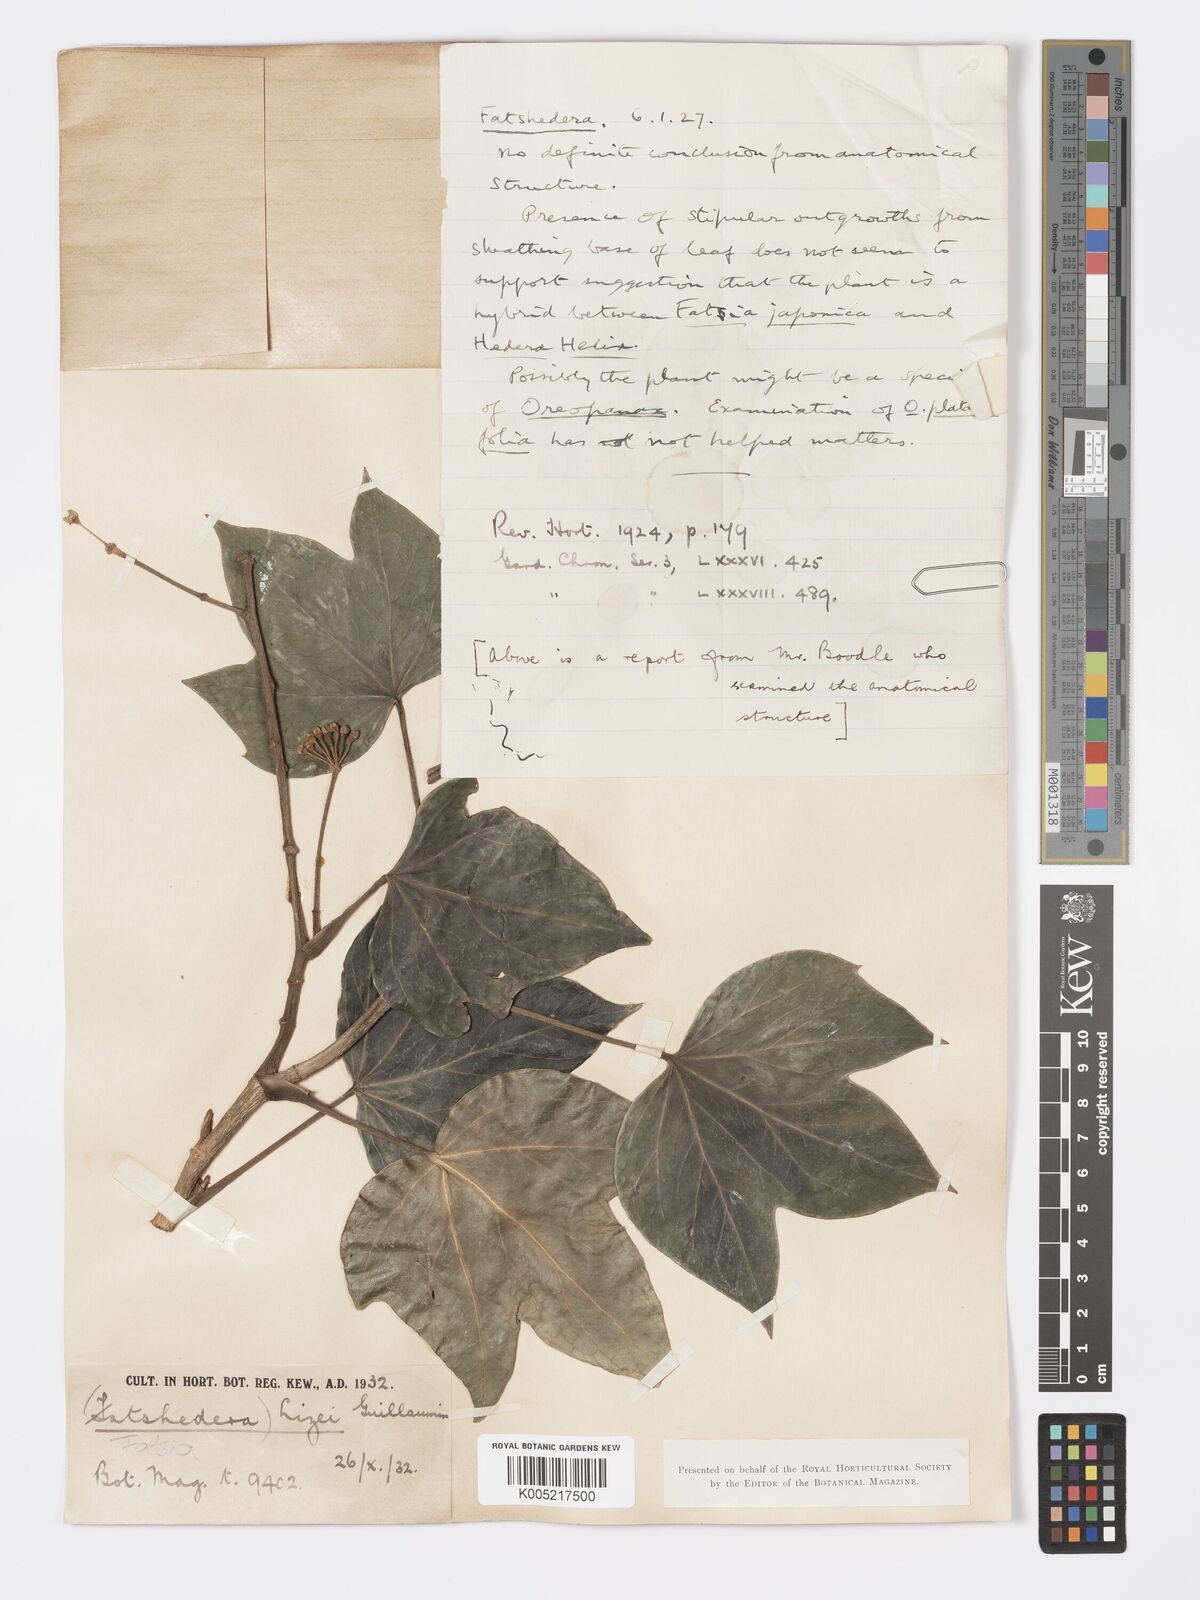 Fatshedera. 6.1.27.
No definite conclusion from anatomical
structure.
Presence of stipular outgrowths from
sheathing base of leaf does not seem to
support suggestion that the plant is a
hybrid between Fatsia japonica and
Hedera Helix.
Possibly the plant might be a speci
of Oreopanax. Examination of O. plata
folia has not helped matters.
Rev. Hort. 1924, p. 179
Gard. Chron. Ser. 3, LXXXVI. 425
" " LXXXVIII. 489.
[Above is a report from Mr. Boodle who
examined the anatomical
structure]
CULT. IN HORT. BOT. REG. KEW., A.D. 1932.
(Fatshedera) Lizei Guillaumin
Fatsia
26/x./32.
Bot. Mag. t. 9402.
ROYAL BOTANIC GARDENS KEW
K005217500
Presented on behalf of the ROYAL HORTICULTURAL SOCIETY
by the EDITOR of the BOTANICAL MAGAZINE.
inches
centimeters
Don Williams
M001318
Royal Botanic Gardens
Kew
0 1 2 3 4 5 6 7 8 9 10
cm
copyright reserved